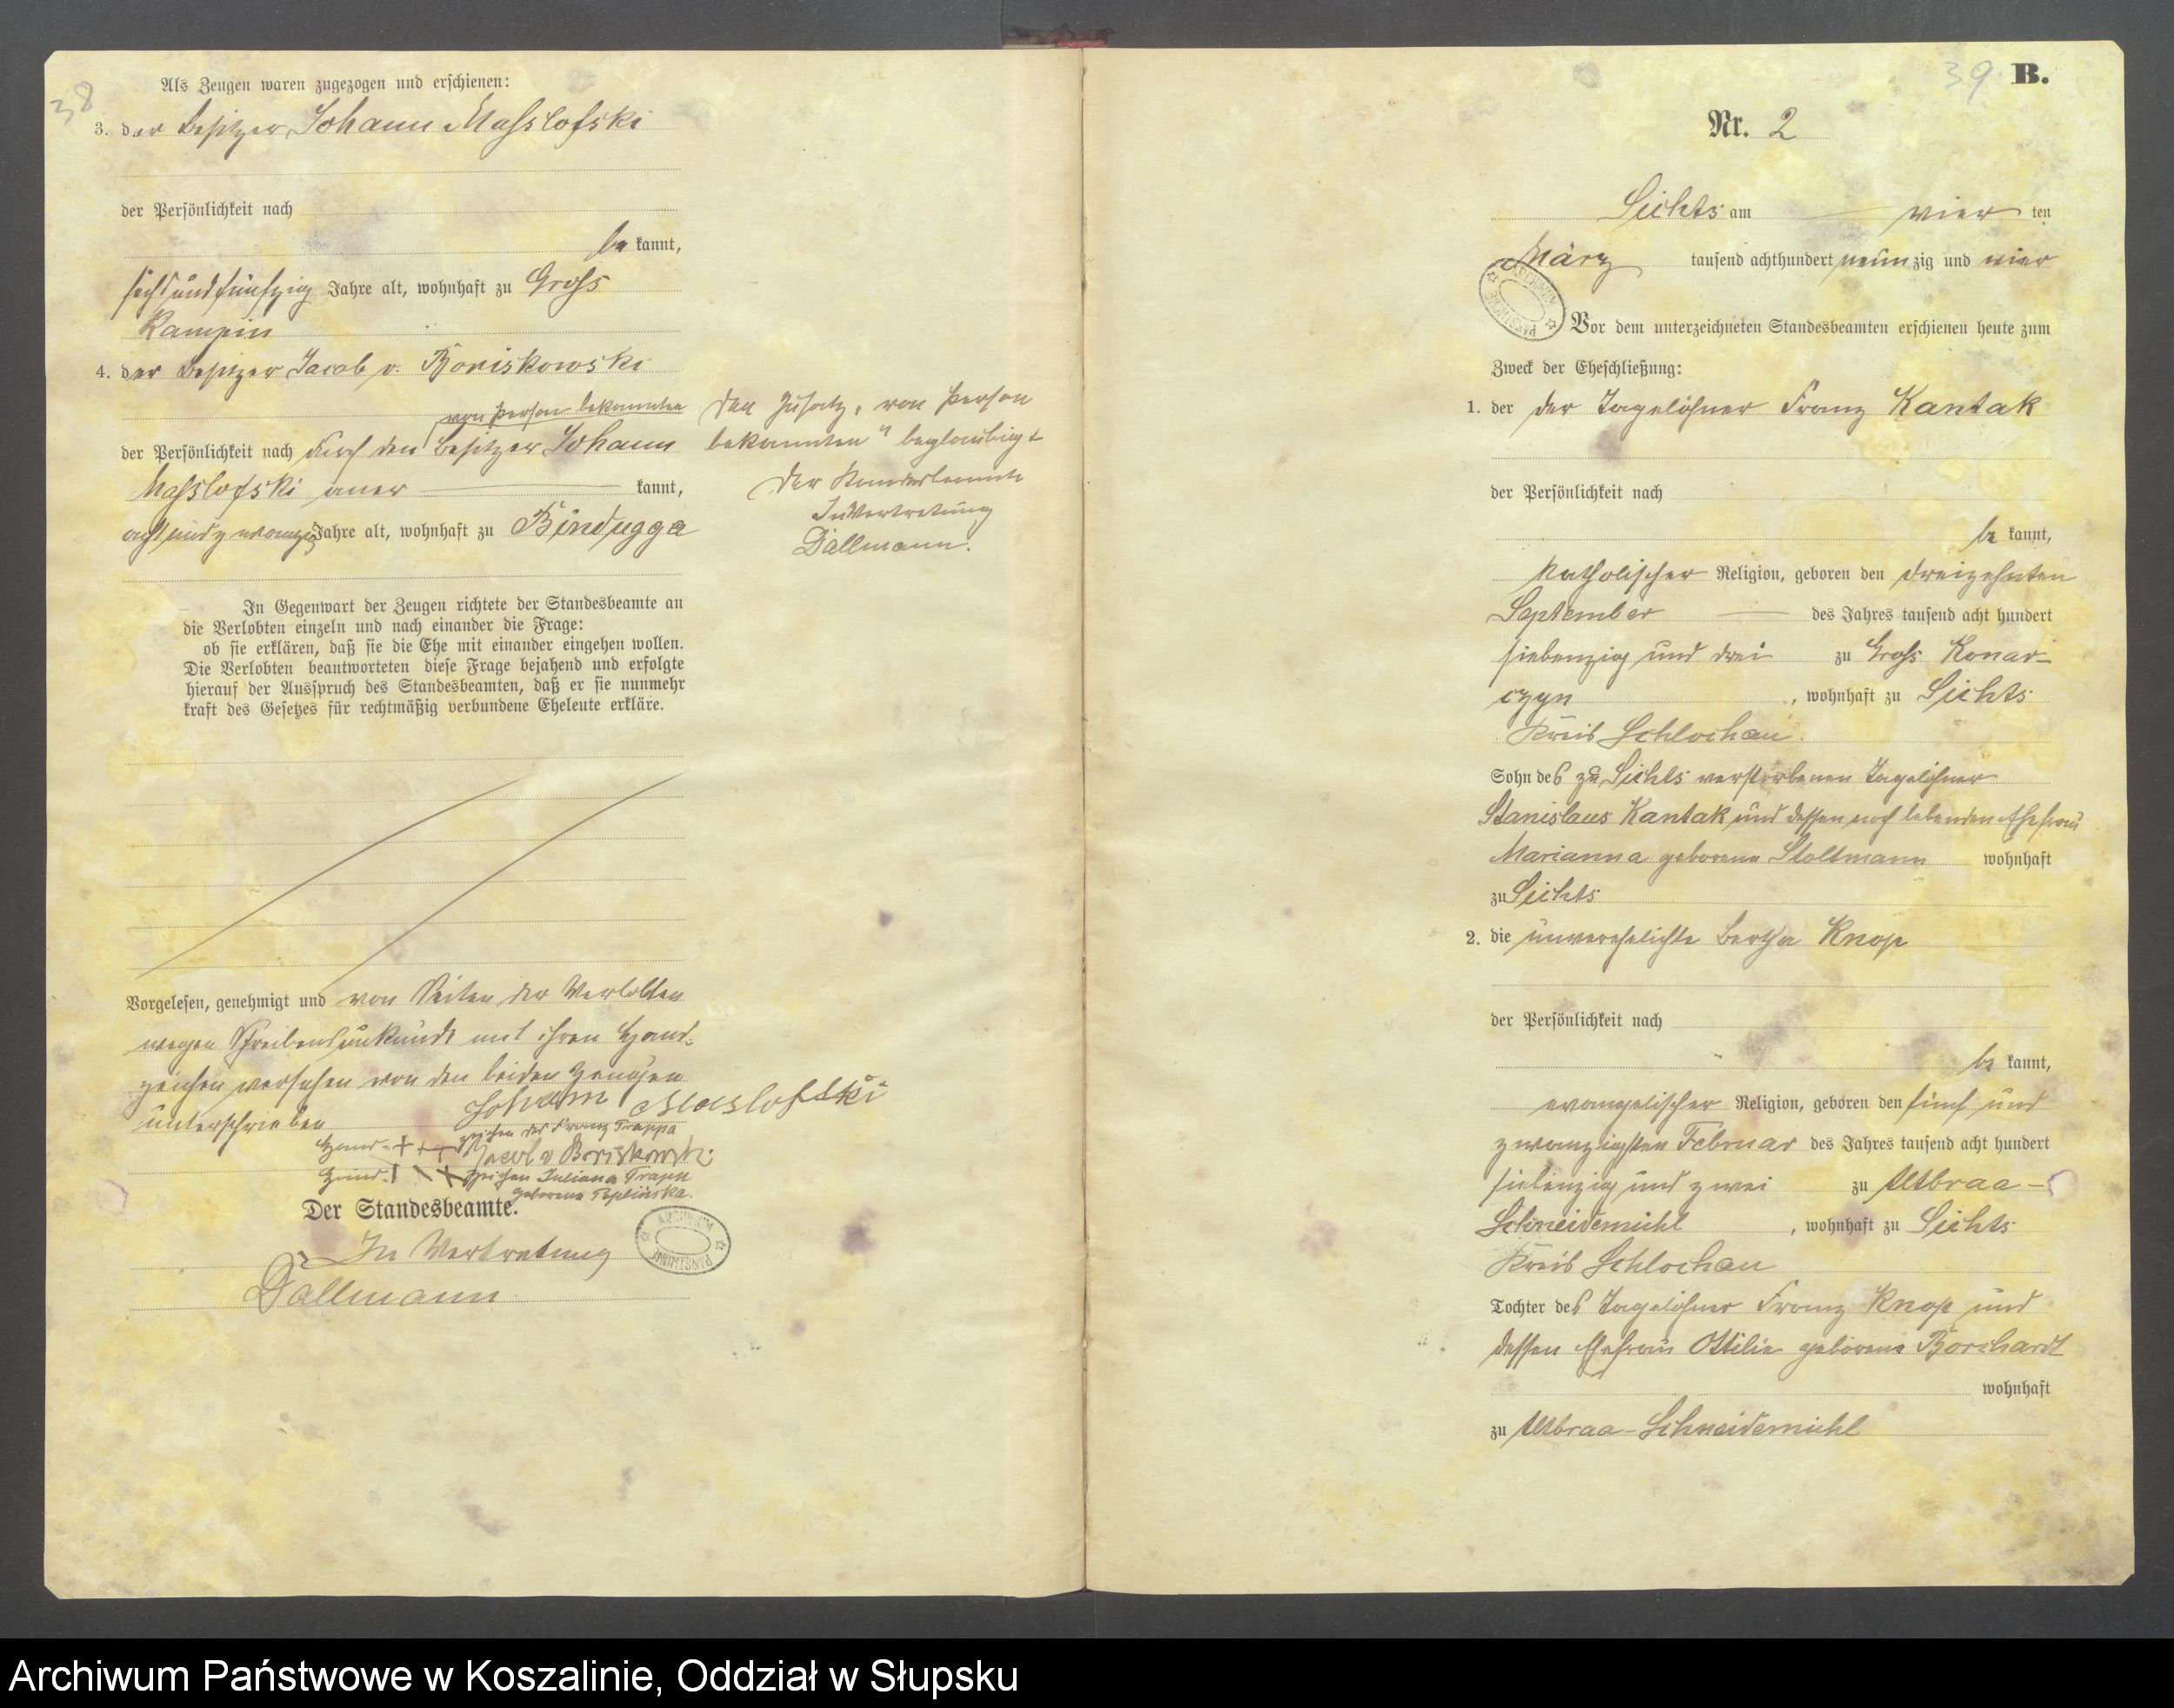 38
Als Zeugen waren zugezogen und erschienen:
3. der Besitzer Johann Masslofski
der Persönlichkeit nach
be kannt,
sechs und fünfzig Jahre alt, wohnhaft zu Gross
Kampin
4. der Besitzer Jacob v. Boriskowski
von Person bekannten
der Persönlichkeit nach durch den Besitzer Johann
Masslofski aner kannt,
acht und zwanzig Jahre alt, wohnhaft zu Bindugga
Den Zusatz „ von Person
bekannten " beglaubigt
Der Standesbeamte
In Vertretung
Dallmann.
In Gegenwart der Zeugen richtete der Standesbeamte an
die Verlobten einzeln und nach einander die Frage:
ob sie erklären, daß sie die Ehe mit einander eingehen wollen.
Die Verlobten beantworteten diese Frage bejahend und erfolgte
hierauf der Ausspruch des Standesbeamten, daß er sie nunmehr
kraft des Gesetzes für rechtmäßig verbundene Eheleute erkläre.
Vorgelesen, genehmigt und von Seiten der Verlobten
wegen Schreibensunkunde mit ihren Hand-
zeichen versehen von den beiden Zeugen
unterschrieben
Johann Maslofski
Hand- +++ zeichen des Franz Trappa
Jacob v Boriskowski
Hand- zeichen Juliana Trapp
geborene Teplinska.
Der Standesbeamte.
In Vertretung
Dallmann.
ARCHIWUM PAŃSTWOWE
39 B.
Nr. 2
Sichts am vier ten
März tausend achthundert neun zig und vier
ARCHIWUM PAŃSTWOWE
Vor dem unterzeichneten Standesbeamten erschienen heute zum
Zweck der Eheschließung:
1. der der Tagelöhner Franz Kantak
der Persönlichkeit nach
be kannt,
katholischer Religion, geboren den dreizehnten
September des Jahres tausend acht hundert
siebenzig und drei zu Gross Konar-
czyn , wohnhaft zu Sichts
Kreis Schlochau.
Sohn des zu Sichts verstorbenen Tagelöhner
Stanislaus Kantak und dessen noch lebenden Ehefrau
Marianna geborene Stoltmann wohnhaft
zu Sichts
2. die unverehelichte Bertha Knop
der Persönlichkeit nach
be kannt,
evangelischer Religion, geboren den fünf und
zwanzigsten Februar des Jahres tausend acht hundert
siebenzig und zwei zu Altbraa-
Schneidemühl , wohnhaft zu Sichts
Kreis Schlochau
Tochter des Tagelöhner Franz Knop und
dessen Ehefrau Ottilie geborene Borchardt
wohnhaft
zu Altbraa-Schneidemühl
Archiwum Państwowe w Koszalinie, Oddział w Słupsku